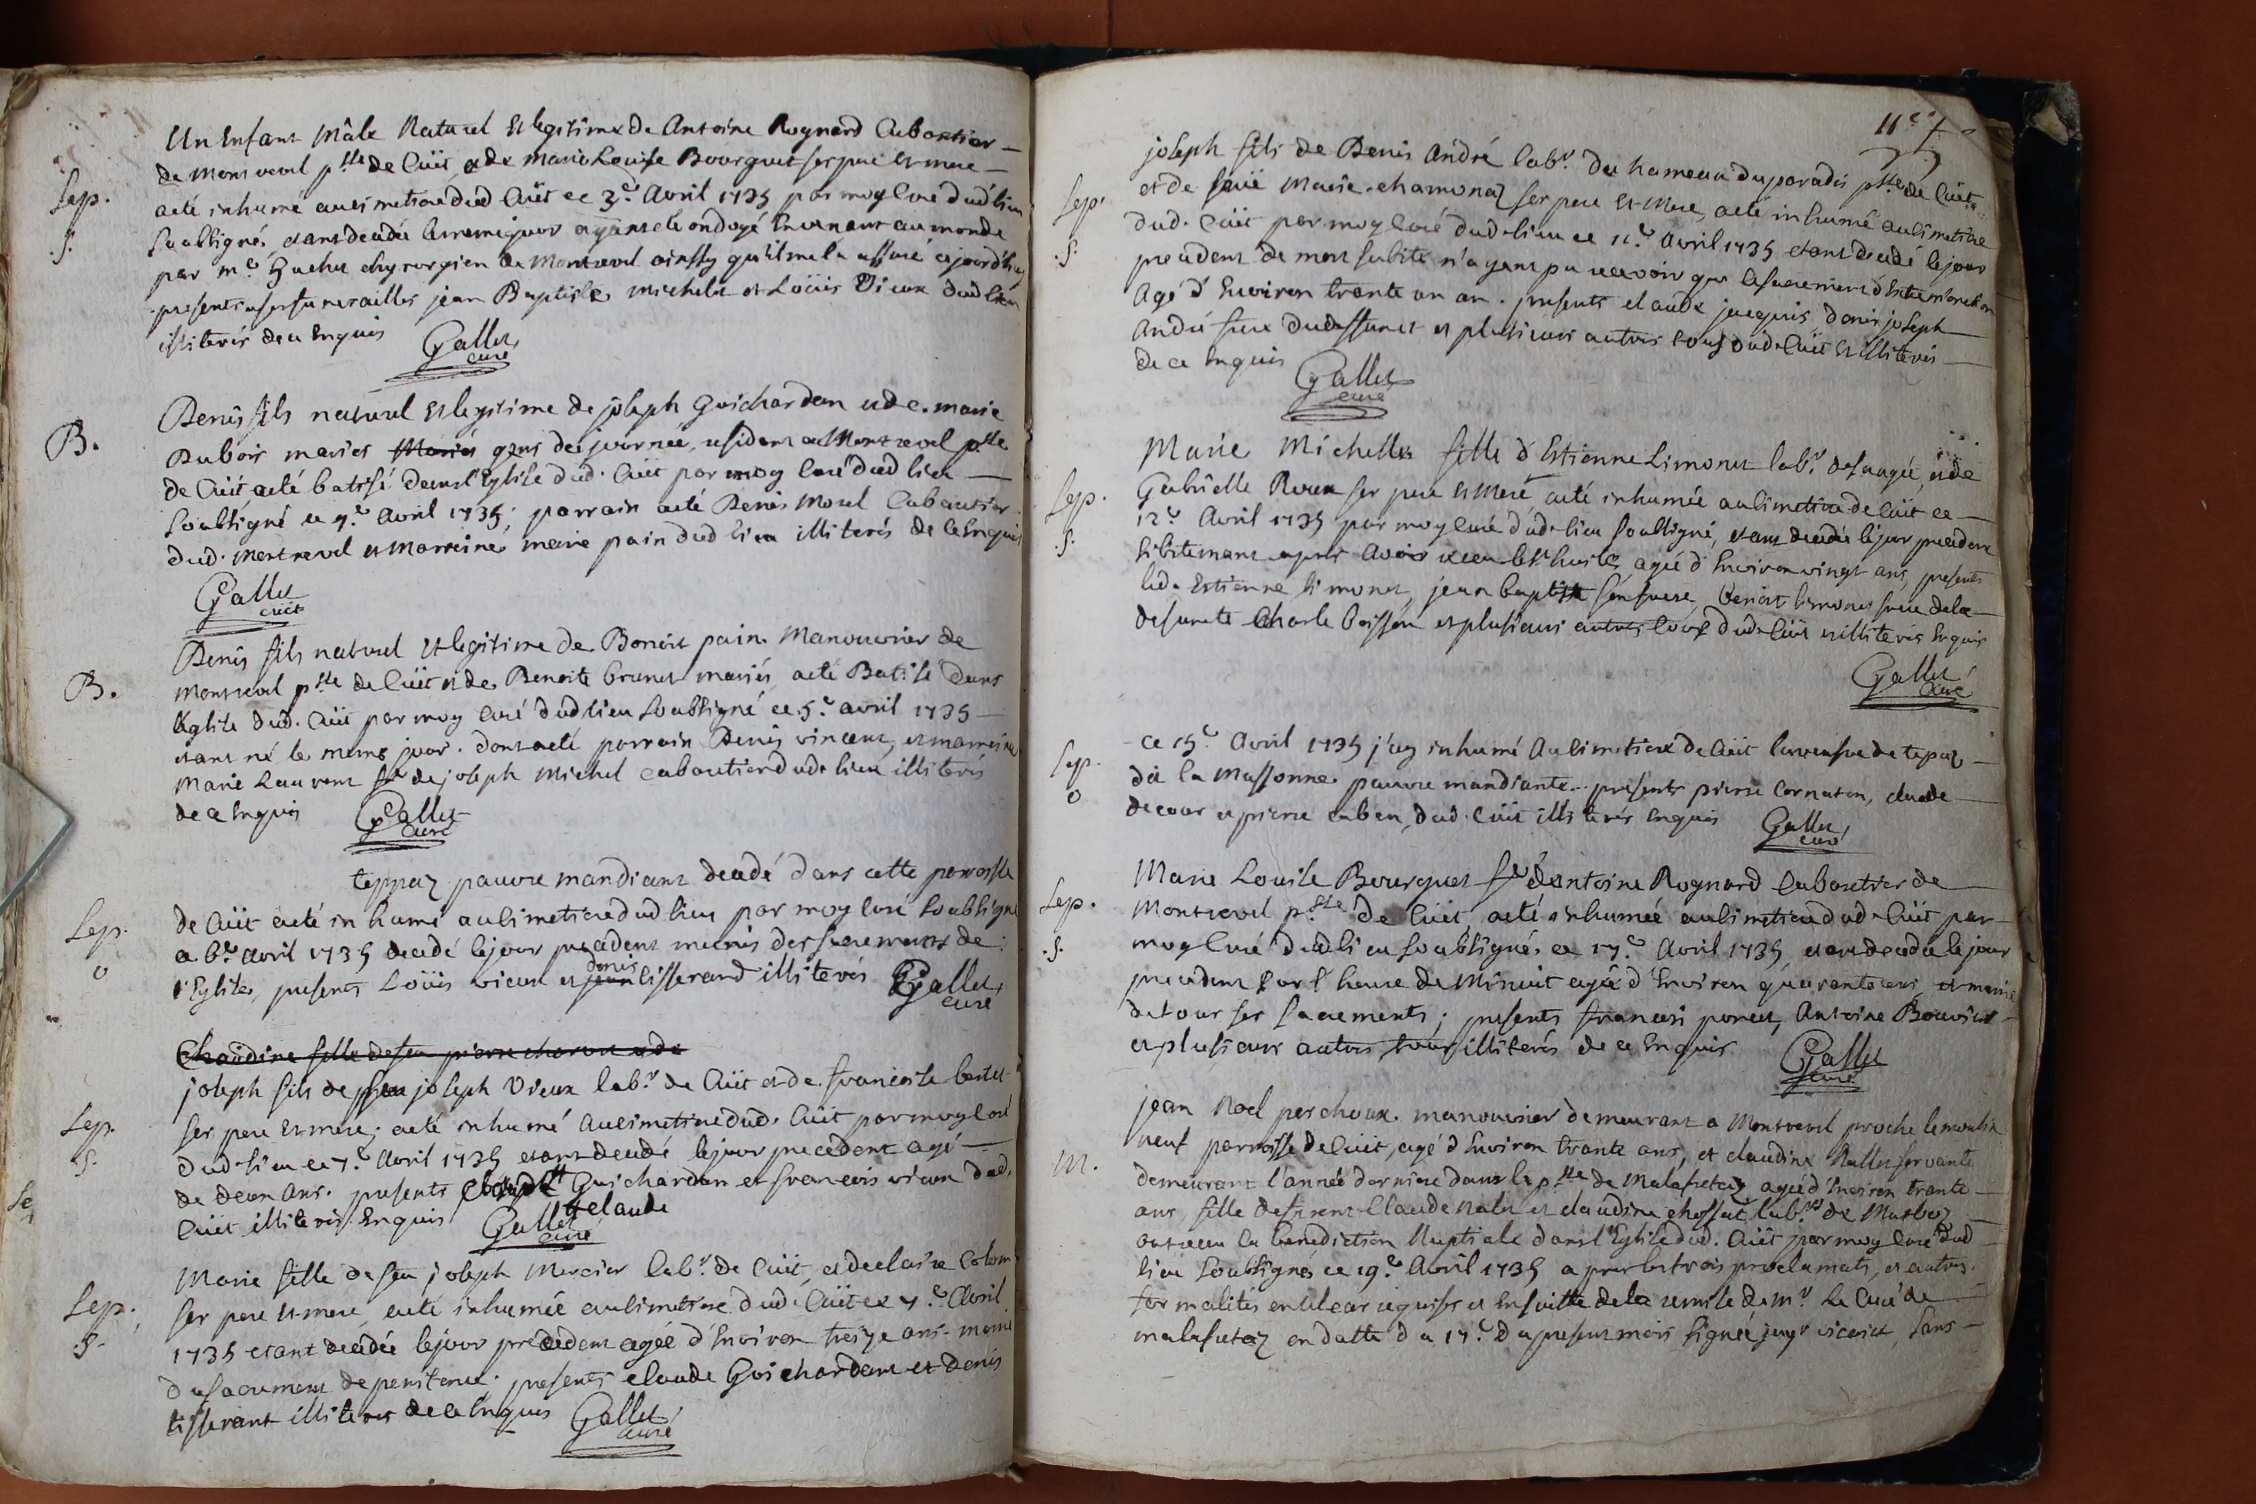 Un Enfant Mâle Naturel et legitime de Antoine Rognard Cabontier
de Montrevel p.sse de Cuit et de Marie Louise Bourguet ses pere et mere
Sep. acté inhumé au cimetiere dud Cuit ce 3.e Avril 1735 par moy Curé dud lieu
S. Soussigné etant decedé le meme jour ayant eté ondoyé En venant au monde
par m.e chyrorgien de Montrevel ainssy qu'il me la assuré
presents a ses funerailles jean Baptiste Michelet et Loüis Vieux dud lieu
illiterés de ce Enquis Gallet
curé
Denis fils naturel et legitime de joseph Guichardan et de marie
B. Dubois mariés Mariés gens de journée, residant a Montrevel p.sse
de Cuit acté batisé dans l'Eglise dud. Cuit par moy Curé dud lieu
Soussigné ce 4.e Avril 1735; parrain acté Denis Morel Cabautier
dud. Montrevel et Marreine marie pain dud lieu illiterés de ce Enquis
Gallet
curé
Denis fils naturel et legitime de Benoit pain Manouvrier de
B. Montrevel p.sse de Cuit et de Benoite brunet mariés, acté Batisé dans
l'Eglise dud. Cuit par moy Curé dud lieu Soussigné ce 5.e avril 1735
etant né le meme jour. dont acté parrain Denis vincent, et marreine
Marie Laurent fe de joseph Michel cabautier dud. lieu illiterés
de ce Enquis Gallet
curé
teppaz pauvre mandiant decedé dans cette parroisse
Sep. de Cuit acté inhumé au cimetiere dud lieu par moy Curé Soussigné
0 ce 6.e Avril 1735 decedé le jour precedent munis des sacrements de
l'Eglise, presents Loüis vieux et jean denis tisserand illiterés Gallet
curé
Claudine fille de feu pierre et de
joseph fils de feu joseph Vieux lab.r de Cuit et de francoise
Sep. ses pere et mere; acté inhumé Au cimetiere dud. Cuit par moy Curé
S. dud. lieu ce 7.e Avril 1735 etant decedé le jour precedent agé
de deux ans. presents Guichardan et francois vieux dud.
Cuit illiterés Enquis Gallet claude
curé
Marie fille de feu joseph Mercier lab.r de Cuit, et de claire
Sep. ses pere et mere, acté inhumée au cimetiere dud. Cuit ce 7.e Avril
S. 1735 etant decedée le jour precedent agée d'Environ treize ans. munie
du sacrement de penitence; presents claude Guichardan et denis
tisserant illiteres de ce Enquis Gallet
curé
11.e
joseph fils de Denis André lab.r du hameau du paradis p.sse de Cuit
Sep. et de feüe Marie chamonaz ses pere et Mere, acté inhumé au cimetiere
S. dud. Cuit par moy Curé dud. lieu ce 11.e Avril 1735 etant decedé le jour
precedent de mort subite n'ayant pu recevoir que le sacrement d'Extremonction
Agé d'Environ trante un an. presents claude jacquis, denis joseph
André frere du deffunct et plusieurs autres tous dud. Cuit et illiterés
de ce Enquis Gallet
curé
Marie Michelle fille d'Estienne Limonet lab.r et de
Sep. Gabrielle Roux ses pere et Mere acté inhumée au cimetiere de Cuit ce
S. 12.e Avril 1735 par moy Curé dud. lieu Soussigné, etant decedée le jour precedent
subitemant apres Avoir receu les S.tes huiles, agée d'Environ vingt ans, presents
led. Estienne Limonet, jean baptiste son frere, benoit Limonet frere de la
defunete Charle boisson et plusieurs autres tous dud. Cuit et illiterés Enquis
Gallet
Curé
Sep. Ce 15.e Avril 1735 j'ay inhumé Au cimetiere de Cuit la veufve de tepaz
0 dit la Massonne pauvre mandiante. presents pierre Cornaton, claude
decour et pierre cuben, dud. Cuit illiterés Enquis Gallet
curé
Marie Louise Bourguet fe d'Antoine Rognard Cabautier de
Sep. Montrevel p.sse de Cuit, acté inhumée au cimetiere dud. Cuit par
S. moy Curé dud lieu soussigné ce 17.e Avril 1735, etant decedée le jour
precedent sur l'heure de Minuit agée d'Environ quarante ans, et munie
de tous ses sacrements; presents francois poncet, Antoine Bouvier
et plusieurs autres tous illiterés de ce Enquis Gallet
curé
jean Noel perchoux manouvrier demeurant a Montrevel proche le moulin
neuf parroisse de Cuit, agé d'Environ trante ans, et claudine Nallet servante
M. demeurant l'année derniere dans la p.sse de Malafretaz agée d'Environ trante
ans, fille de furent Claude Nallet et claudine chossat lab.rs de Marboz
ont receu la benediction Nuptiale dans l'Eglise dud. Cuit par moy Curé dud
lieu soussigné ce 19.e Avril 1735 apres les trois proclamats, et autres
formalités en tel cas requises et Ensuitte de la remise de m.r Le Curé de
malafretaz en datte du 17.e du present mois signée vicaire, sans